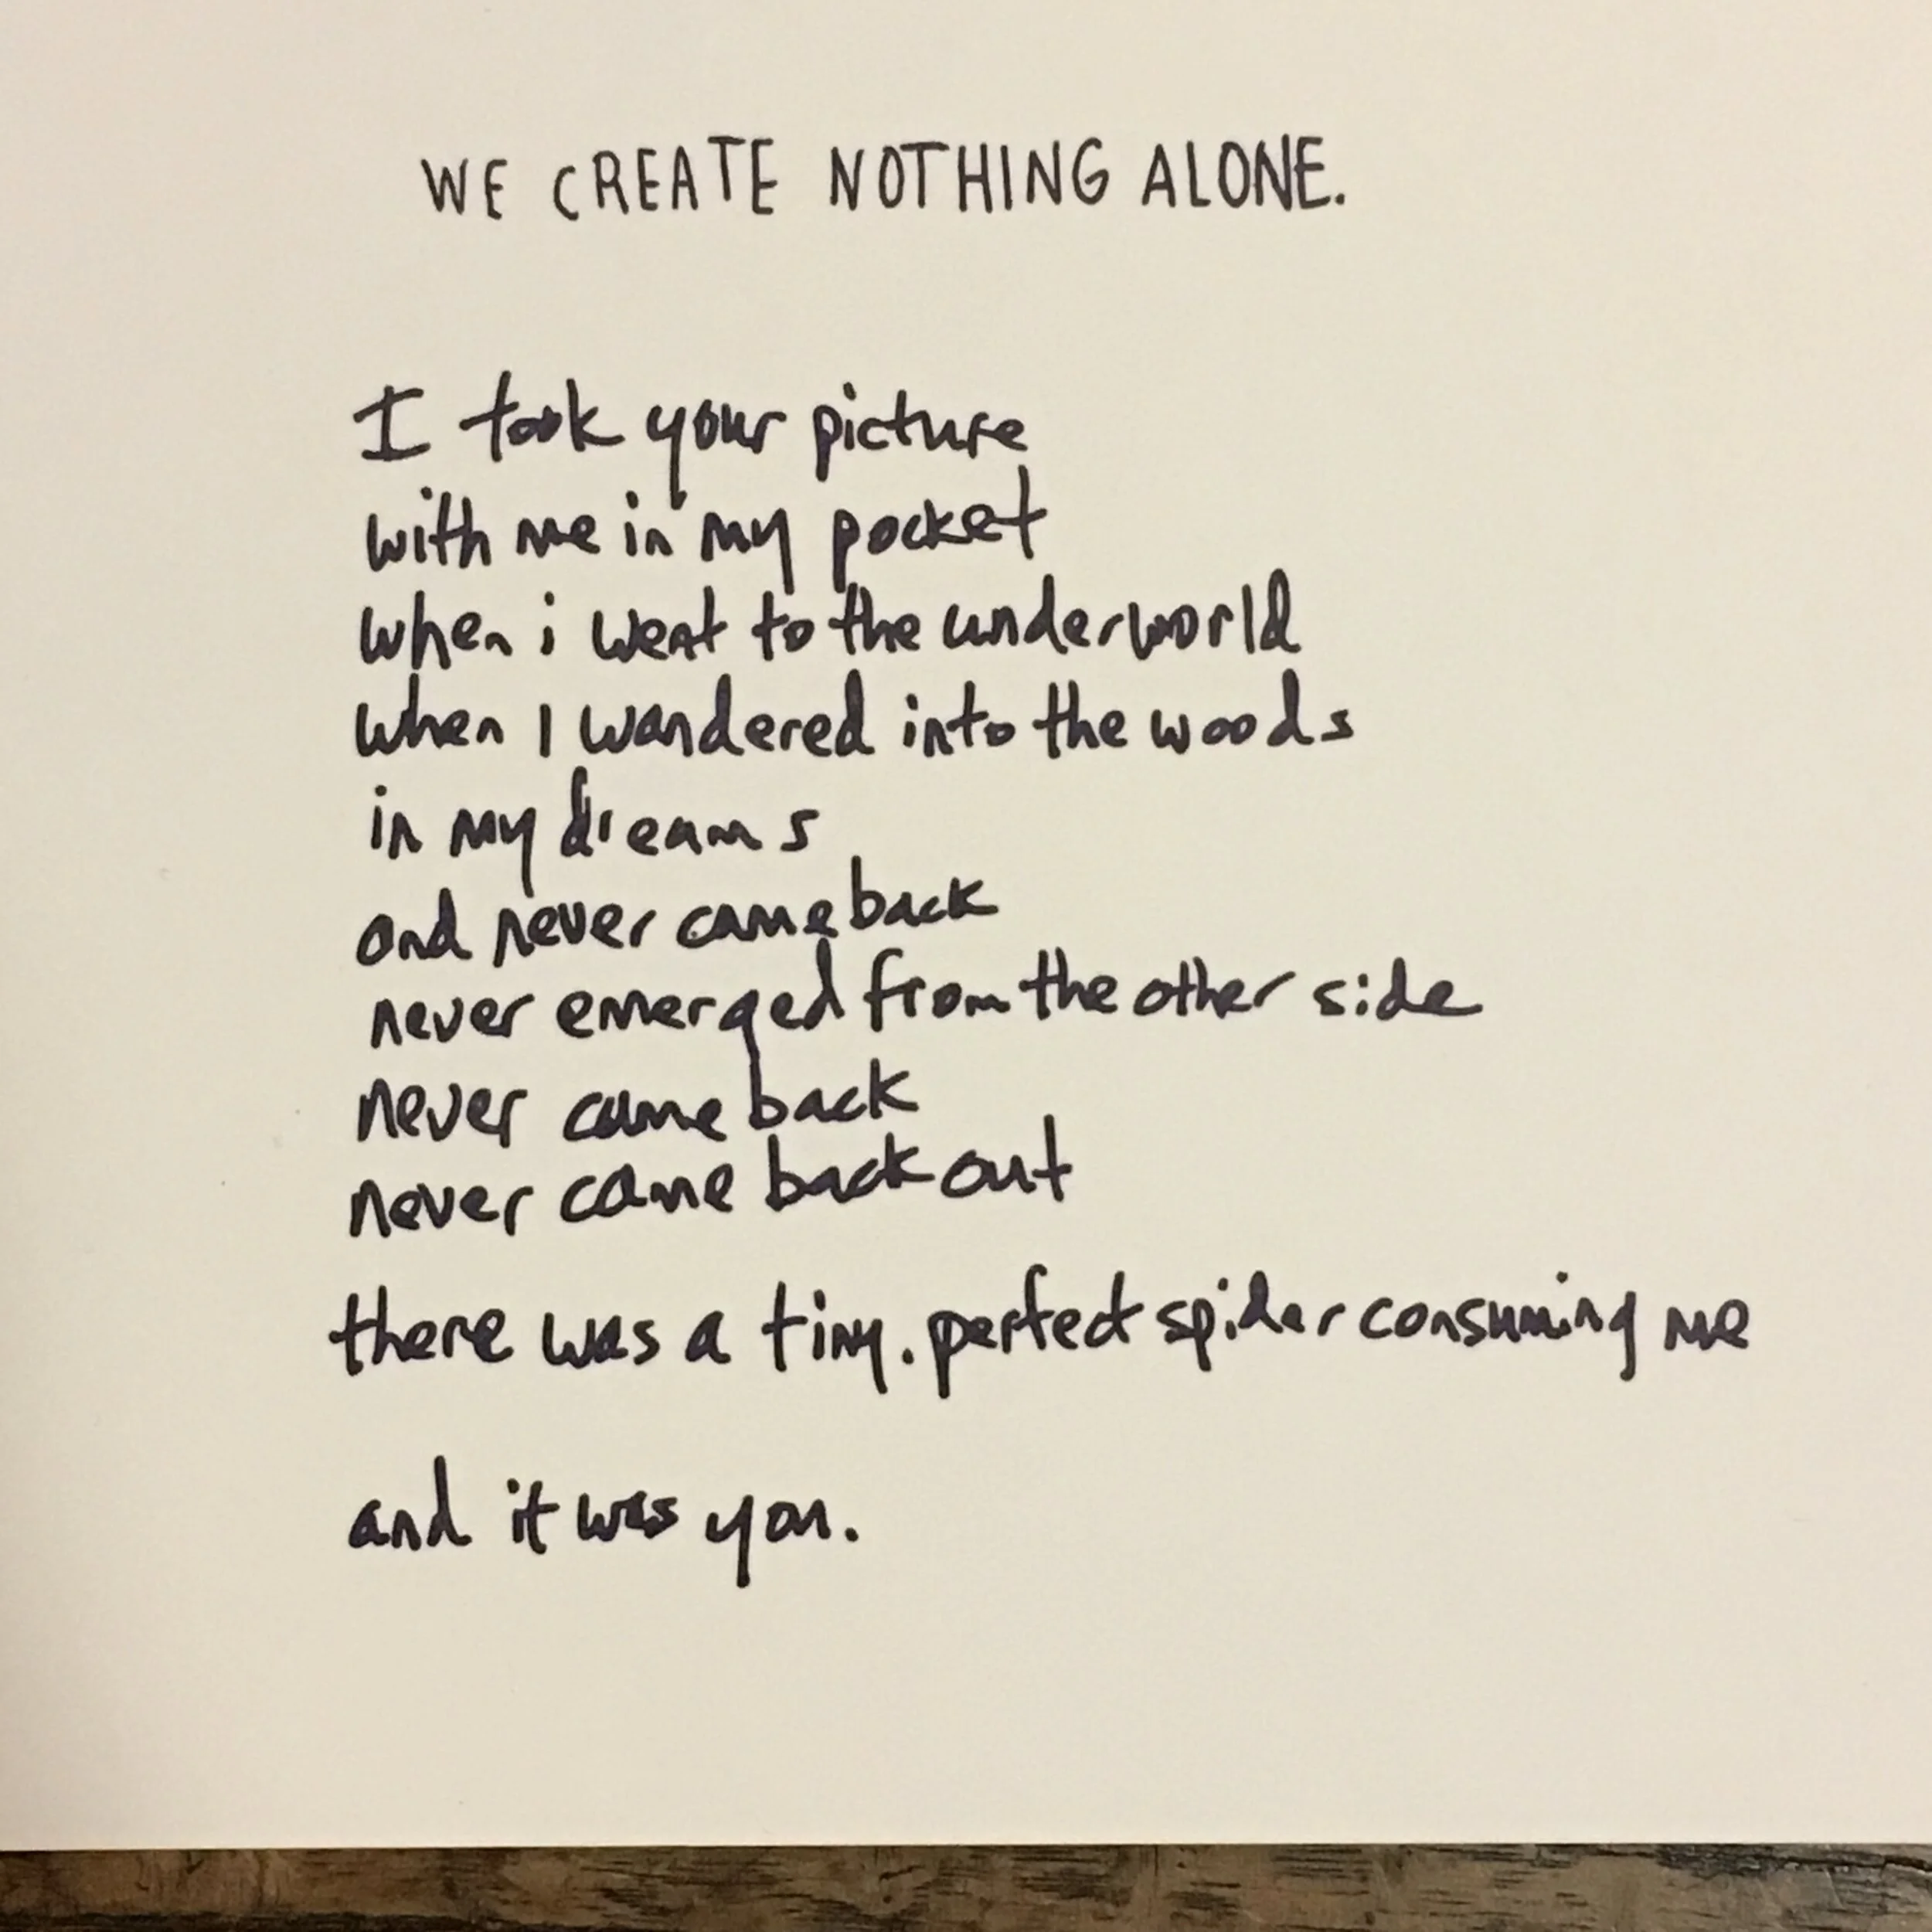 WE CREATE NOTHING ALONE.
I took your picture
with me in my pocket
when i went to the underworld
when I wandered into the woods
in my dreams
and never came back
never emerged from the other side
never came back
never came back out
there was a tiny. perfect spider consuming me
and it was you.